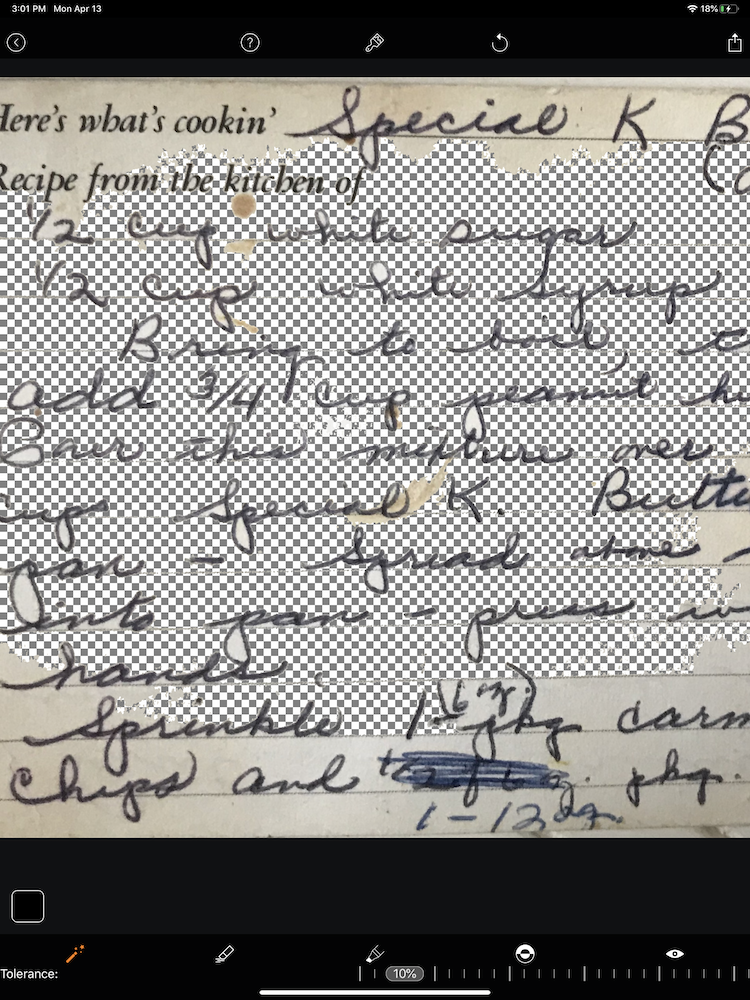 3:01 PM Mon Apr 13
18%
Here's what's cookin' Special K B
Recipe from the kitchen of
1/2 cup white sugar
1/2 cup white syrup
Bring to boil, t
add 3/4 cup peanut bu
Pour this mixture over
cups Special K. Butte
pan - Spread above -
into pan - press w
hands.
(6 oz.)
Sprinkle 1 - pkg carm
Chips and pkg.
1 - 12 oz.
Tolerance:
10%